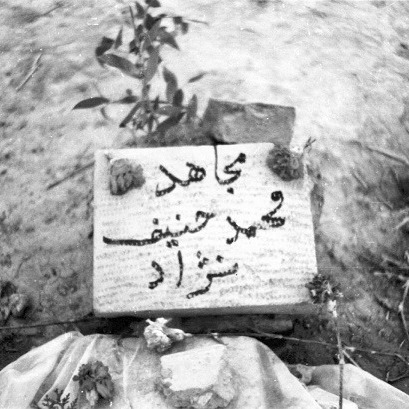 مجاهد
محمد حنیف
نژاد